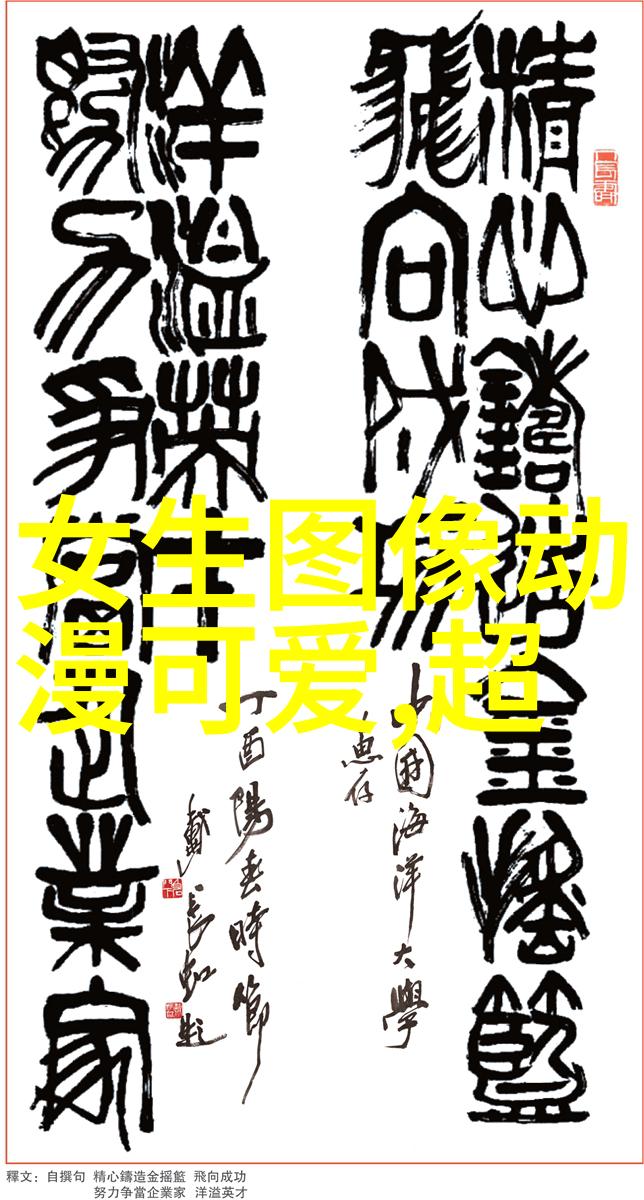 精心鑄造金搖籃
飛向成功
中國海洋大學
惠存
努力爭當企業家
洋溢英才
丁酉陽春時節
戴長虹題
女生图像动
漫可爱,超
釋文：自撰句 精心鑄造金摇籃 飛向成功
努力争當企業家 洋溢英才